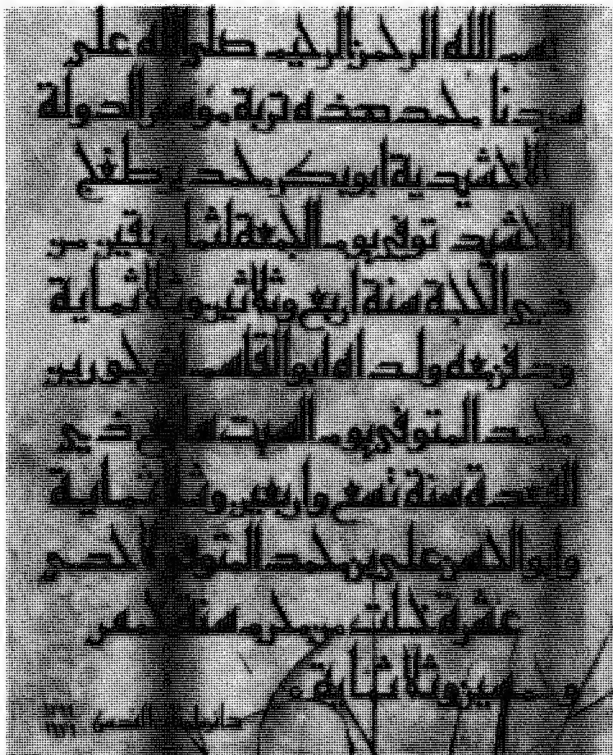 بسم الله الرحمن الرحيم صلى الله على
سيدنا محمد هذه تربة مؤسس الدولة
الاخشيدية ابو بكر محمد بن طغج
الاخشيد توفي يوم الجمعة لثمان بقين من
ذي الحجة سنة اربع وثلاثين وثلاثماية
ودفن معه ولداه ابو القاسم انوجور بن
محمد المتوفى يوم السبت سابع ذي
القعدة سنة تسع واربعين وثلاثماية
وابو الحسن علي بن محمد المتوفى لاحدى
عشرة خلت من محرم سنة خمس
وخمسين وثلاثماية
القدس